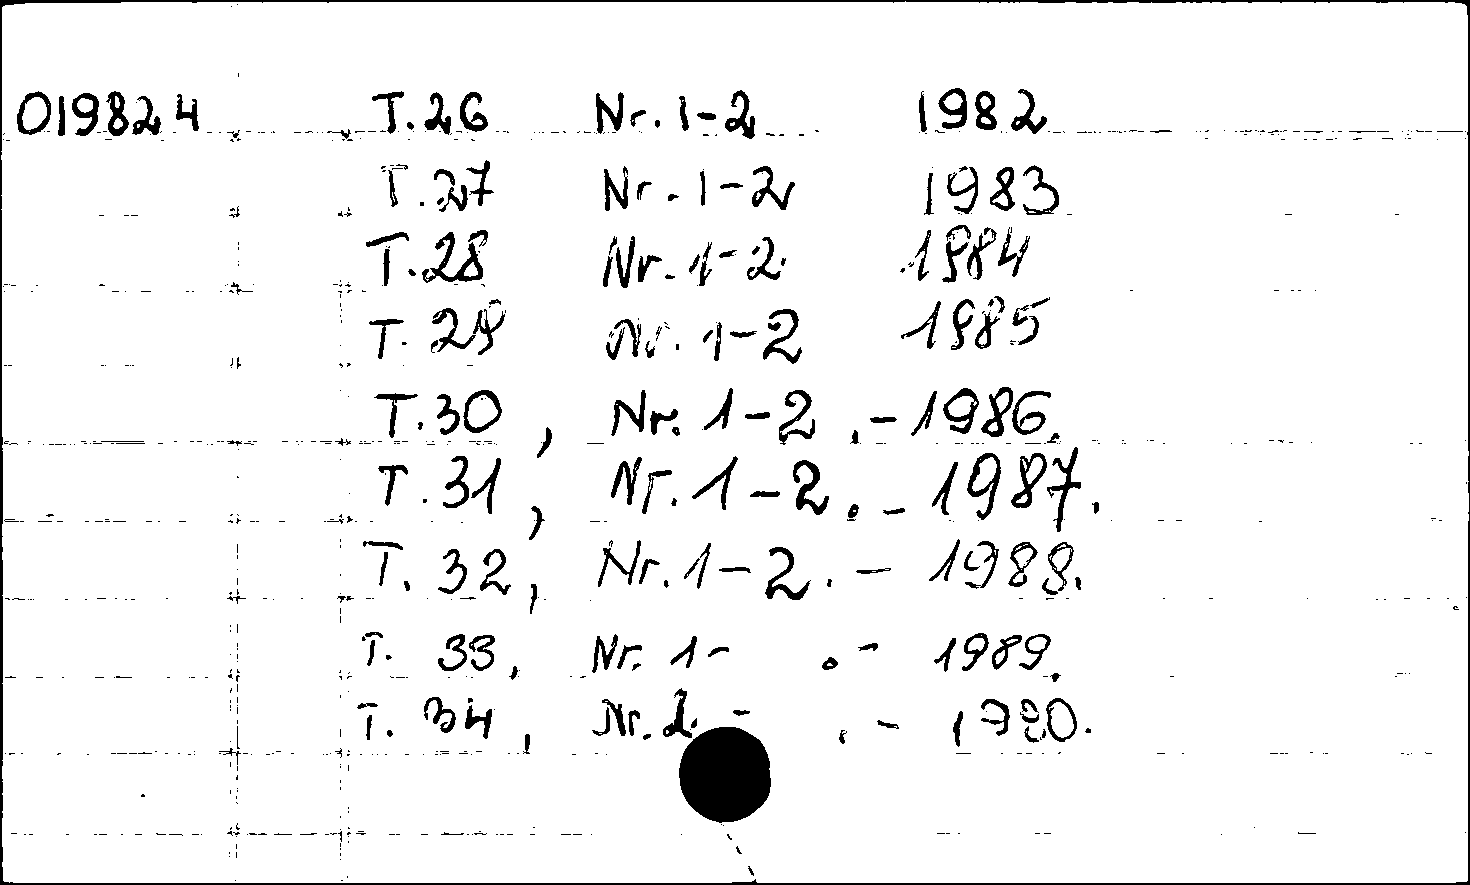 019824 T.26 Nr. 1-2 1982
T.27 Nr. 1-2 1983
T.28 Nr. 1-2 1984
T. 29 Nr. 1-2 1985
T.30, Nr. 1-2.-1986.
T.31, Nr. 1-2. - 1987.
T. 32, Nr. 1-2. - 1988.
T. 33, Nr. 1- .- 1989.
T. 34, Nr. - .- 1990.